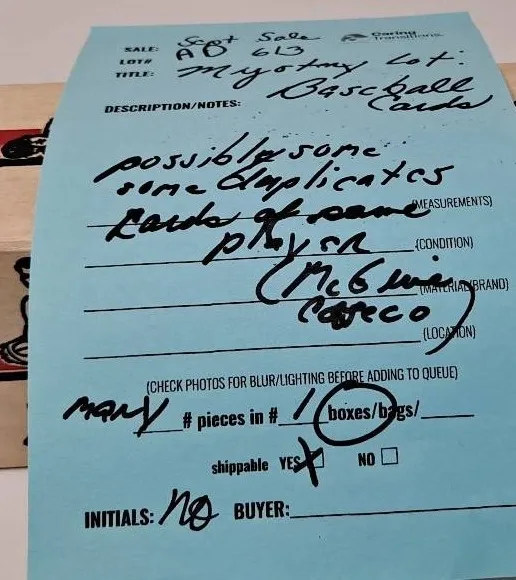 SALE: Sept Sale
Caring Transitions
LOT# AD 613
TITLE: Mystery Lot:
Baseball
DESCRIPTION/NOTES: Cards
possibly some
some duplicates
Cards of same (MEASUREMENTS)
player (CONDITION)
(McGwire (MATERIAL/BRAND)
Caseco) (LOCATION)
(CHECK PHOTOS FOR BLUR/LIGHTING BEFORE ADDING TO QUEUE)
MANY # pieces in # 1 boxes/bags/
shippable YES X NO
INITIALS: NO BUYER: